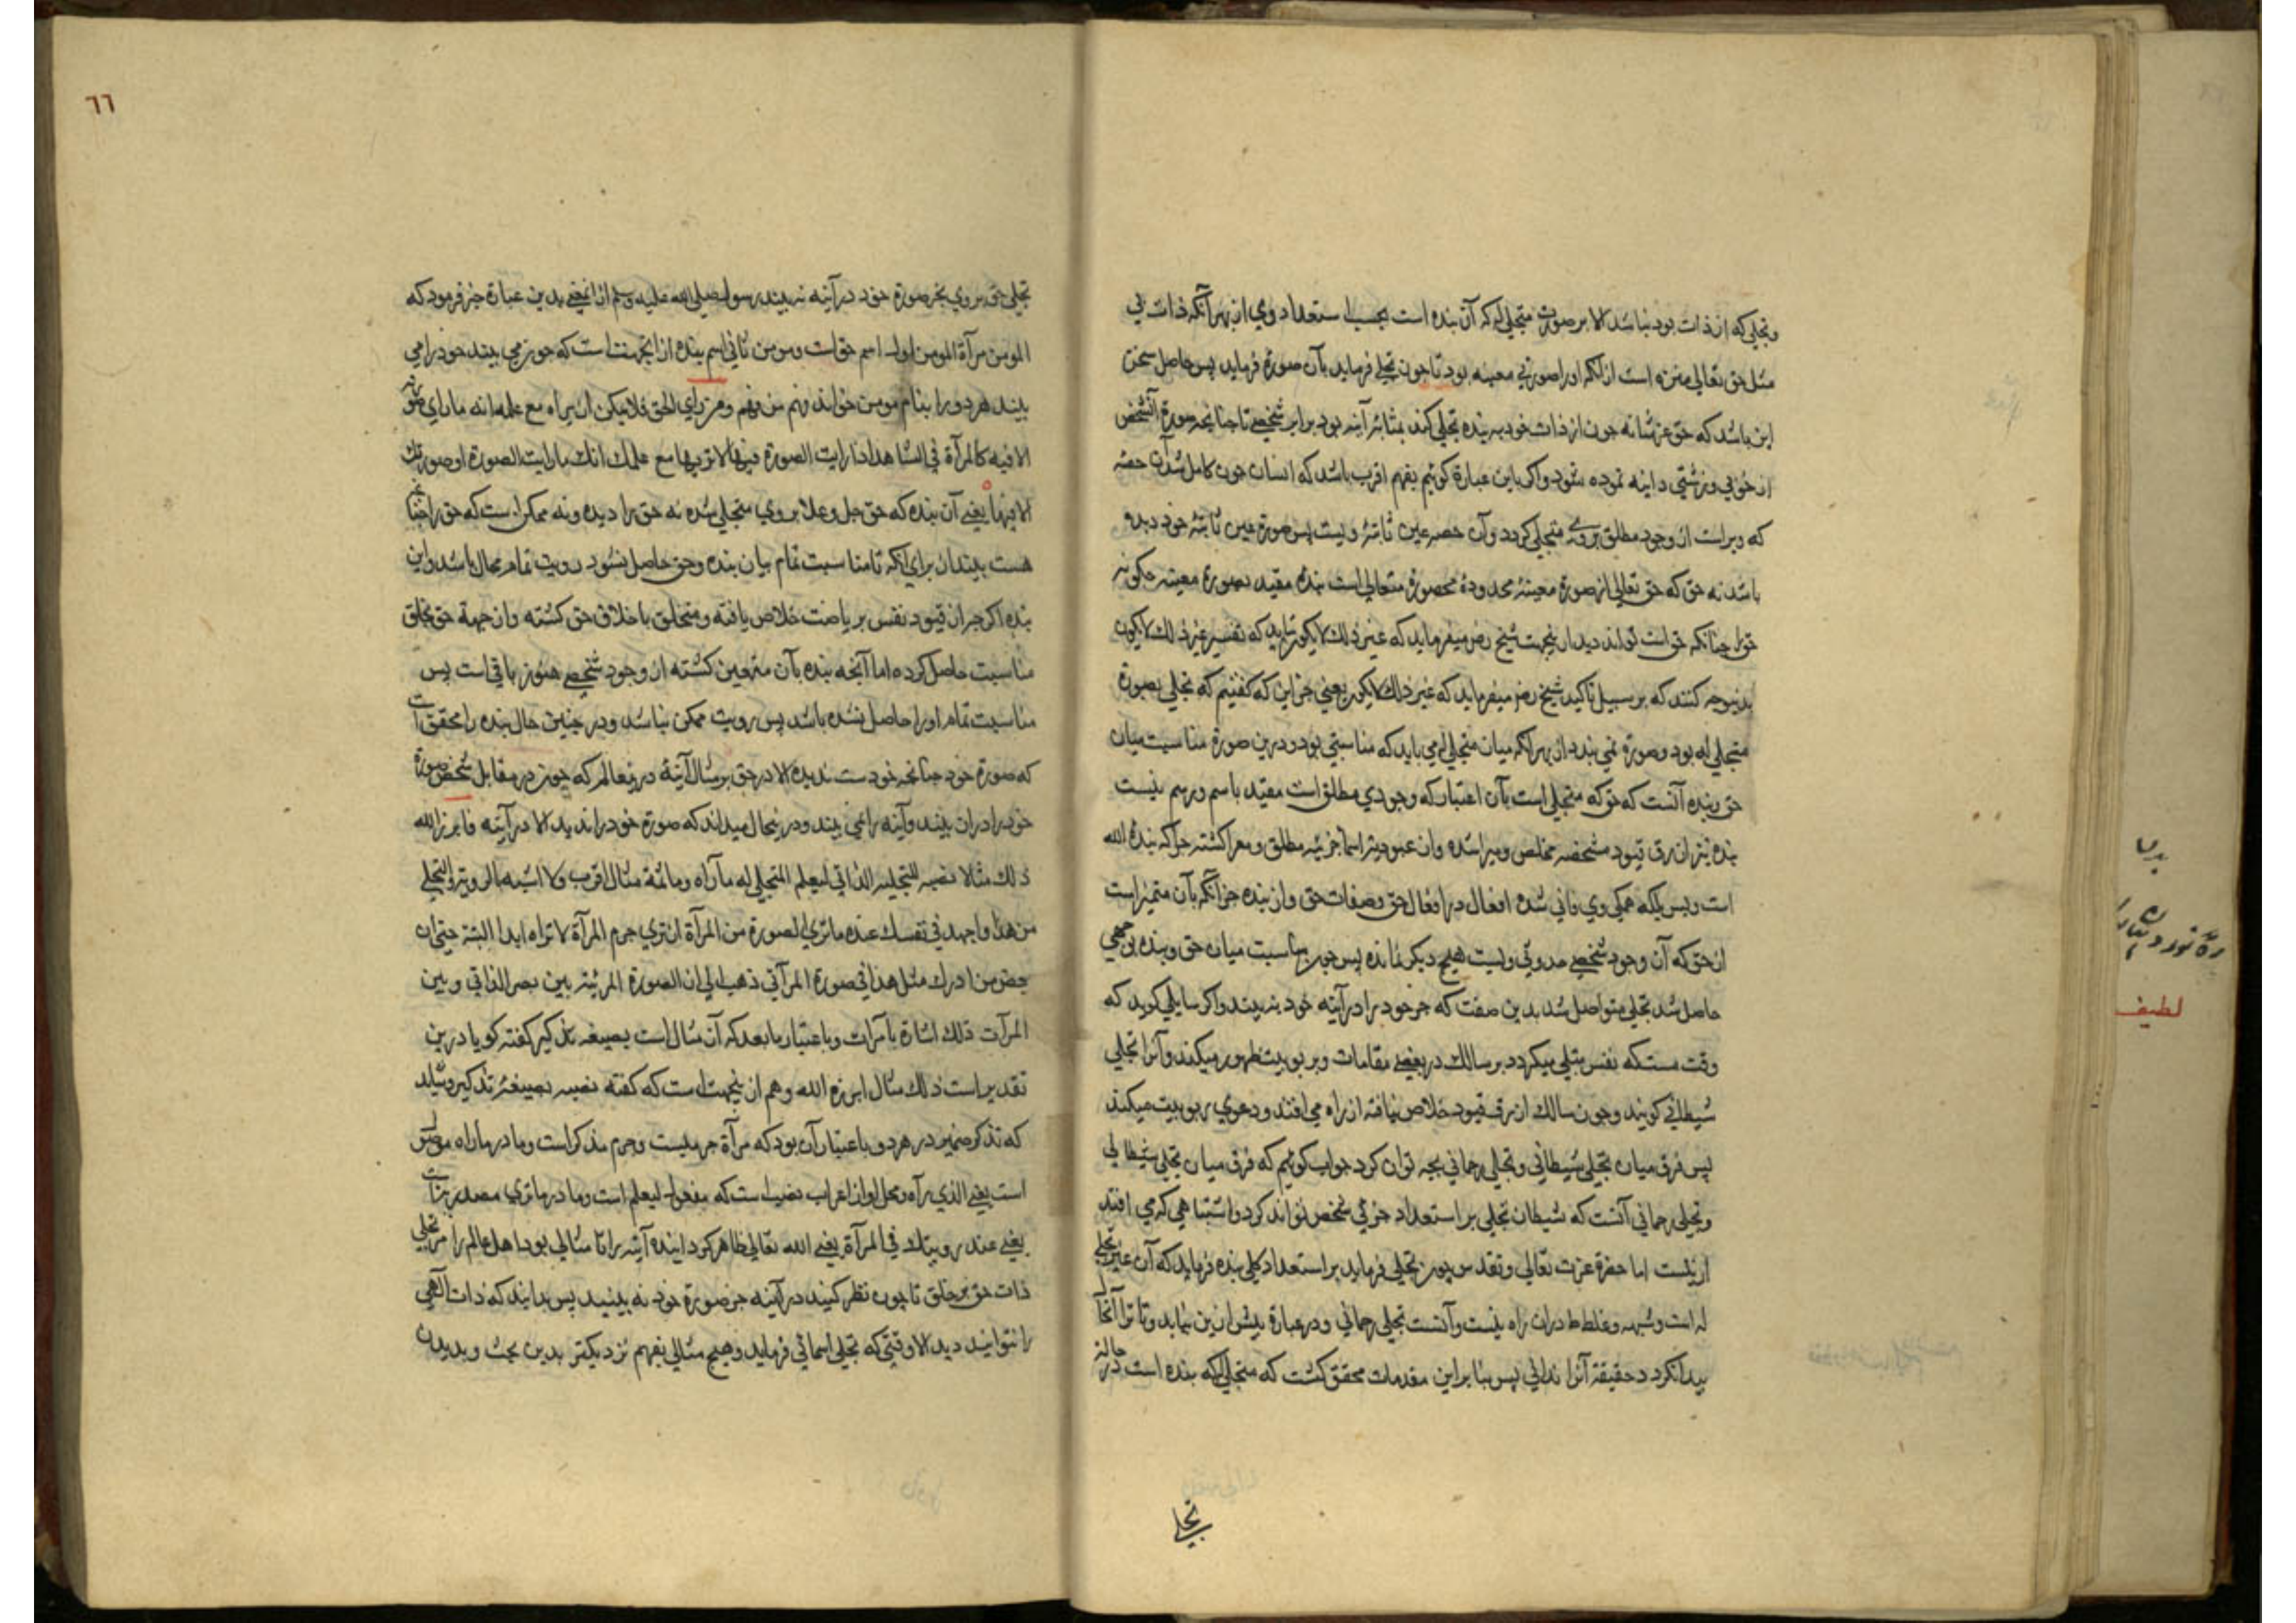 وتجلی که از ذات بود نباشد الا بر صورت متجلی له که آن بنده است بحسب استعداد وی از بهر آنکه ذات بی
مثل حق تعالی منزه است از انکه اورا صورتی معینه بود تا چون تجلی فرماید بآن صورة فرماید پس حاصل سخن
این باشد که حق عز شانه چون از ذات خود به بنده تجلی کند بمثابۀ آینه بود برابر شخصی تا چنانچه صورة آنشخص
از خوبی وزشتی در اینه نموده شود واکر باین عبارة کوئیم بفهم اقرب باشد که انسان چون کامل شد آن حصه
که ویراست از وجود مطلق بروی متجلی کردد وآن حصه عین ثابتۀ ویست پس صورة عین ثابتۀ خود دیده
باشد نه حق که حق تعالی از صورة معینۀ محدودۀ محصورة متعالی است بنده مقید بصورة معینه چکونه
حق را چنانکه حق است تواند دید از ینجهت شیخ رض میفرماید که غیر ذلک لا یکون شاید که تفسیر غیر ذلک لا یکون
بدینوجه کنند که بر سبیل تاکید شیخ رض میفرماید که غیر ذلک لا یکون یعنی جز این که کفتیم که تجلی بصورة
متجلی له بود وصورة نمی بندد از بهر انکه میان متجلی له می باید که مناسبتی بود ودرین صورة مناسبت میان
حق وبنده آنست که حق که متجلی است بآن اعتبار که وجودی مطلق است مقید باسم ورسم نیست
بنده نیز از رق قیود مشخصه مخلص ومبرا شده واز عبودیة اسماء جزئیه مطلق ومعرا کشته چراکه بندۀ الله
است وبس بلکه همکی وی فانی شده افعال در افعال حق وصفات حق واز بنده جز انکه بآن متمیز است
از حق که آن وجود شخصی حدوثی ویست هیچ دیکر نمانده پس چون مناسبت میان حق وبنده بوجهی
حاصل شد تجلی متواصل شد بدین صفت که جز خود را در آینه خود نه بیند واکر سایلی کوید که
وقت هست که نفس متجلی میکردد بر سالک در بعضی مقامات وبربوبیت ظهور میکند وآنرا تجلی
شیطانی کویند وچون سالک از رق قیود خلاص نیافته از راه می افتد ودعوی ربوبیت میکند
پس فرق میان تجلی شیطانی وتجلی رحمانی بچه توان کرد جواب کوئیم که فرق میان تجلی شیطانی
وتجلی رحمانی آنست که شیطان تجلی بر استعداد جزئی شخص تواند کرد واشتباهی که می افتد
ازینست اما حضرة عزت تعالی وتقدس چون تجلی فرماید بر استعداد کلی بنده فرماید که آن عین متجلی
له است وشبهه وغلط دران راه نیست وآنست تجلی رحمانی ودر عبارة بیش ازین نیاید وتا ترا آنجا
پیدا نکردد حقیقة آنرا ندانی پس بنابر این مقدمات محقق کشت که متجلی له که بنده است در حالة
تجلی
٦٦
تجلی حق بروی بجز صورة خود در آینه نه بیند رسول صلی الله علیه وسلم از اینمعنی بدین عبارة خبر فرمود که
المومن مرآة المومن اول اسم حق است ومومن ثانی اسم بنده از اینجهت است که چون می بیند خود را می
بیند هر دو را بنام مومن خواند فهم من فهم ومن رای الحق فلا یمکن ان یراه مع علمه انه ما رای صورته
الا فیه کالمرآة فی الشاهد اذا رایت الصورة فیها لا تریها مع علمک انک ما رایت الصورة او صورتک
الا فیها یعنی آن بنده که حق جل وعلا بروی متجلی شده نه حق را دیده ونه ممکن است که حق را چنانچه
هست بیند از برای انکه تا مناسبت تمام میان بنده وحق حاصل نشود رویت تمام محال باشد واین
بنده اکرچه از قیود نفس بریاضت خلاص یافته ومتخلق باخلاق حق کشته واز جهة حق بخلق
مناسبت حاصل کرده اما آنچه بنده بآن متعین کشته از وجود شخصی هنوز باقی است پس
مناسبت تمام اورا حاصل نشده باشد پس رویت ممکن نباشد ودر چنین حال بنده را محقق است
که صورة خود چنانچه خودست ندیده الا در حق بر مثال آینه درینعالم که چون در مقابل شخص صورة
خود را دران بیند وآینه را نمی بیند ودر ینحال میداند که صورة خود را ندید الا در آینه فابرز الله
ذلک مثالا نصبه لتجلیه الذاتی لیعلم المتجلی له ما رآه وما ثمة مثال اقرب ولا اشبه بالرویة والتجلی
من هذا واجهد فی نفسک عند ما تری الصورة من المرآة ان تری جرم المرآة لا تراه ابدا البتة حتی ان
بعض من ادرک مثل هذا فی صورة المرآتی ذهب الی ان الصورة المرئیة بین بصر الرائی وبین
المرآت ذلک اشارة بامرات وباعتبار ما بعد که آن مثال است بصیغه تذکیر کفته کویا درین
تقدیر است ذلک مثال ابرزه الله وهم از ینجهت است که کفته نصبه بصیغۀ تذکیر وشاید
که تذکیر ضمیر در هر دو باعتبار آن بود که مرآة جرمیست وجرم مذکر است وما در ما راه موصول
است یعنی الذی رآه ومحل او از اعراب نصب است که مفعول لیعلم است وما در ما تری مصدریه است
یعنی عند رویتک فی المرآة یعنی الله تعالی ظاهر کردانیده آینه را تا مثالی بود اهل عالم را مر تجلی
ذات حق بر خلق تا چون نظر کنند در آینه جز صورة خود نه بینند پس بدانند که ذات الهی
را نتوانند دید الا وقتی که تجلی اسمائی فرماید وهیچ مثالی بفهم نزدیکتر بدین بحث وبدیدن
لطیف